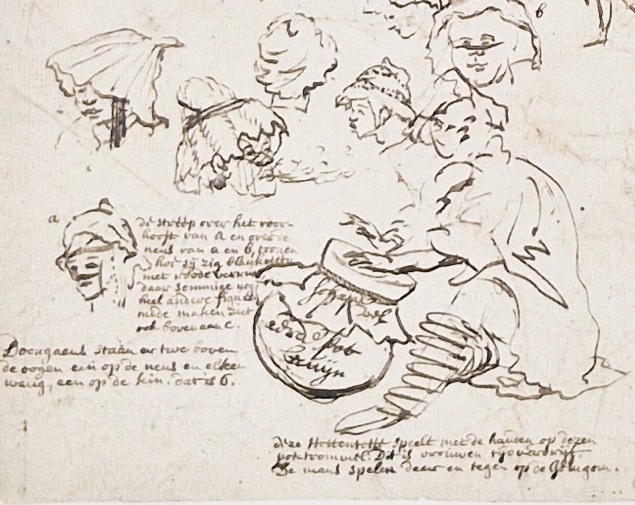 6
a
de streep over het voor-
hooft van a en over de
neus van a en 6, toonen
hoe sij zig blanketten
met roode verruw
daar sommige nog
heel andere figuren
mede maken ziet
ook bovenaan c.
Doorgaens staan er twe boven
de oogen een op de neus en elken
wang, een op de kin. dat is 6.
vel
aerde pot
deze Hottentotse speelt met de handen op dezen
pottrommel. Dit is vrouwen tijdverdrijf.
De mans spelen daar en tegen op de Gom gom.